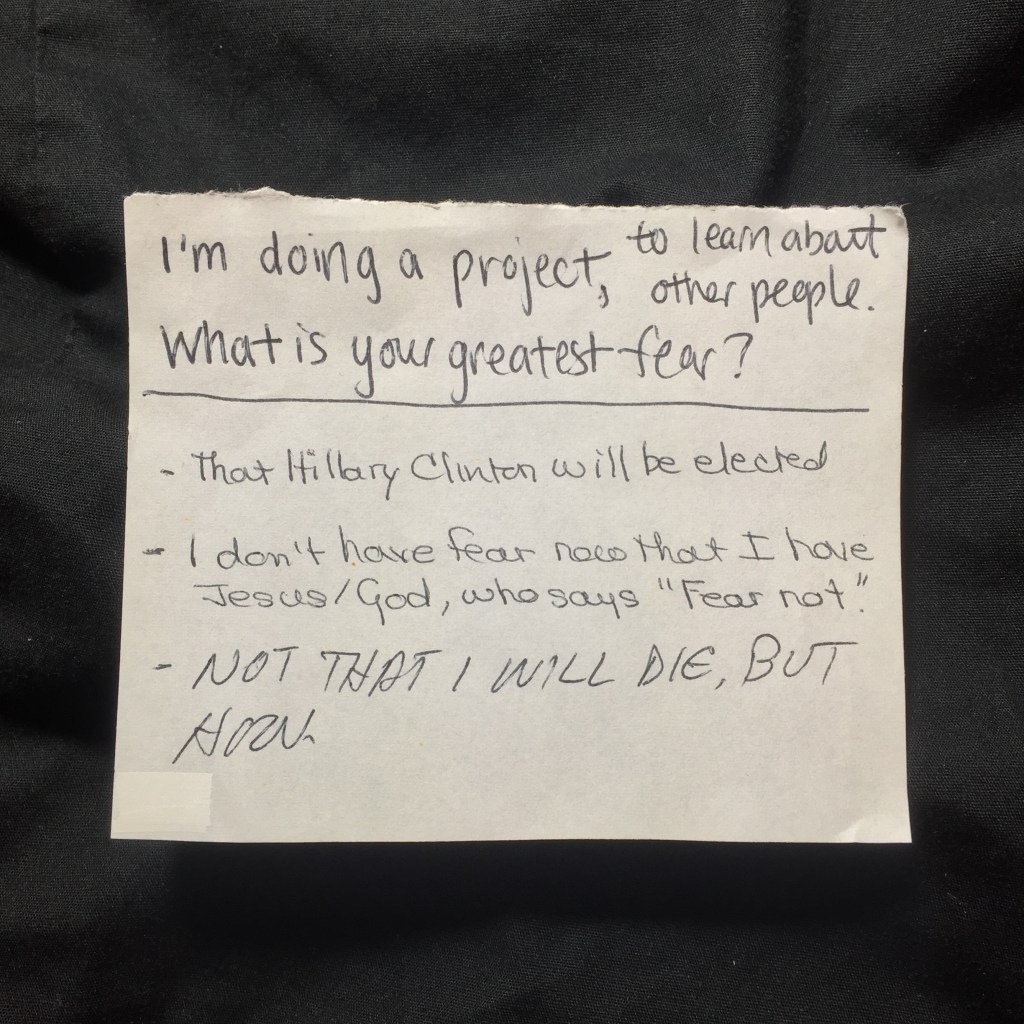 I'm doing a project, to learn about
other people.
What is your greatest fear?
- That Hillary Clinton will be elected
- I don't have fear now that I have
Jesus/God, who says "Fear not."
- NOT THAT I WILL DIE, BUT
HOW.